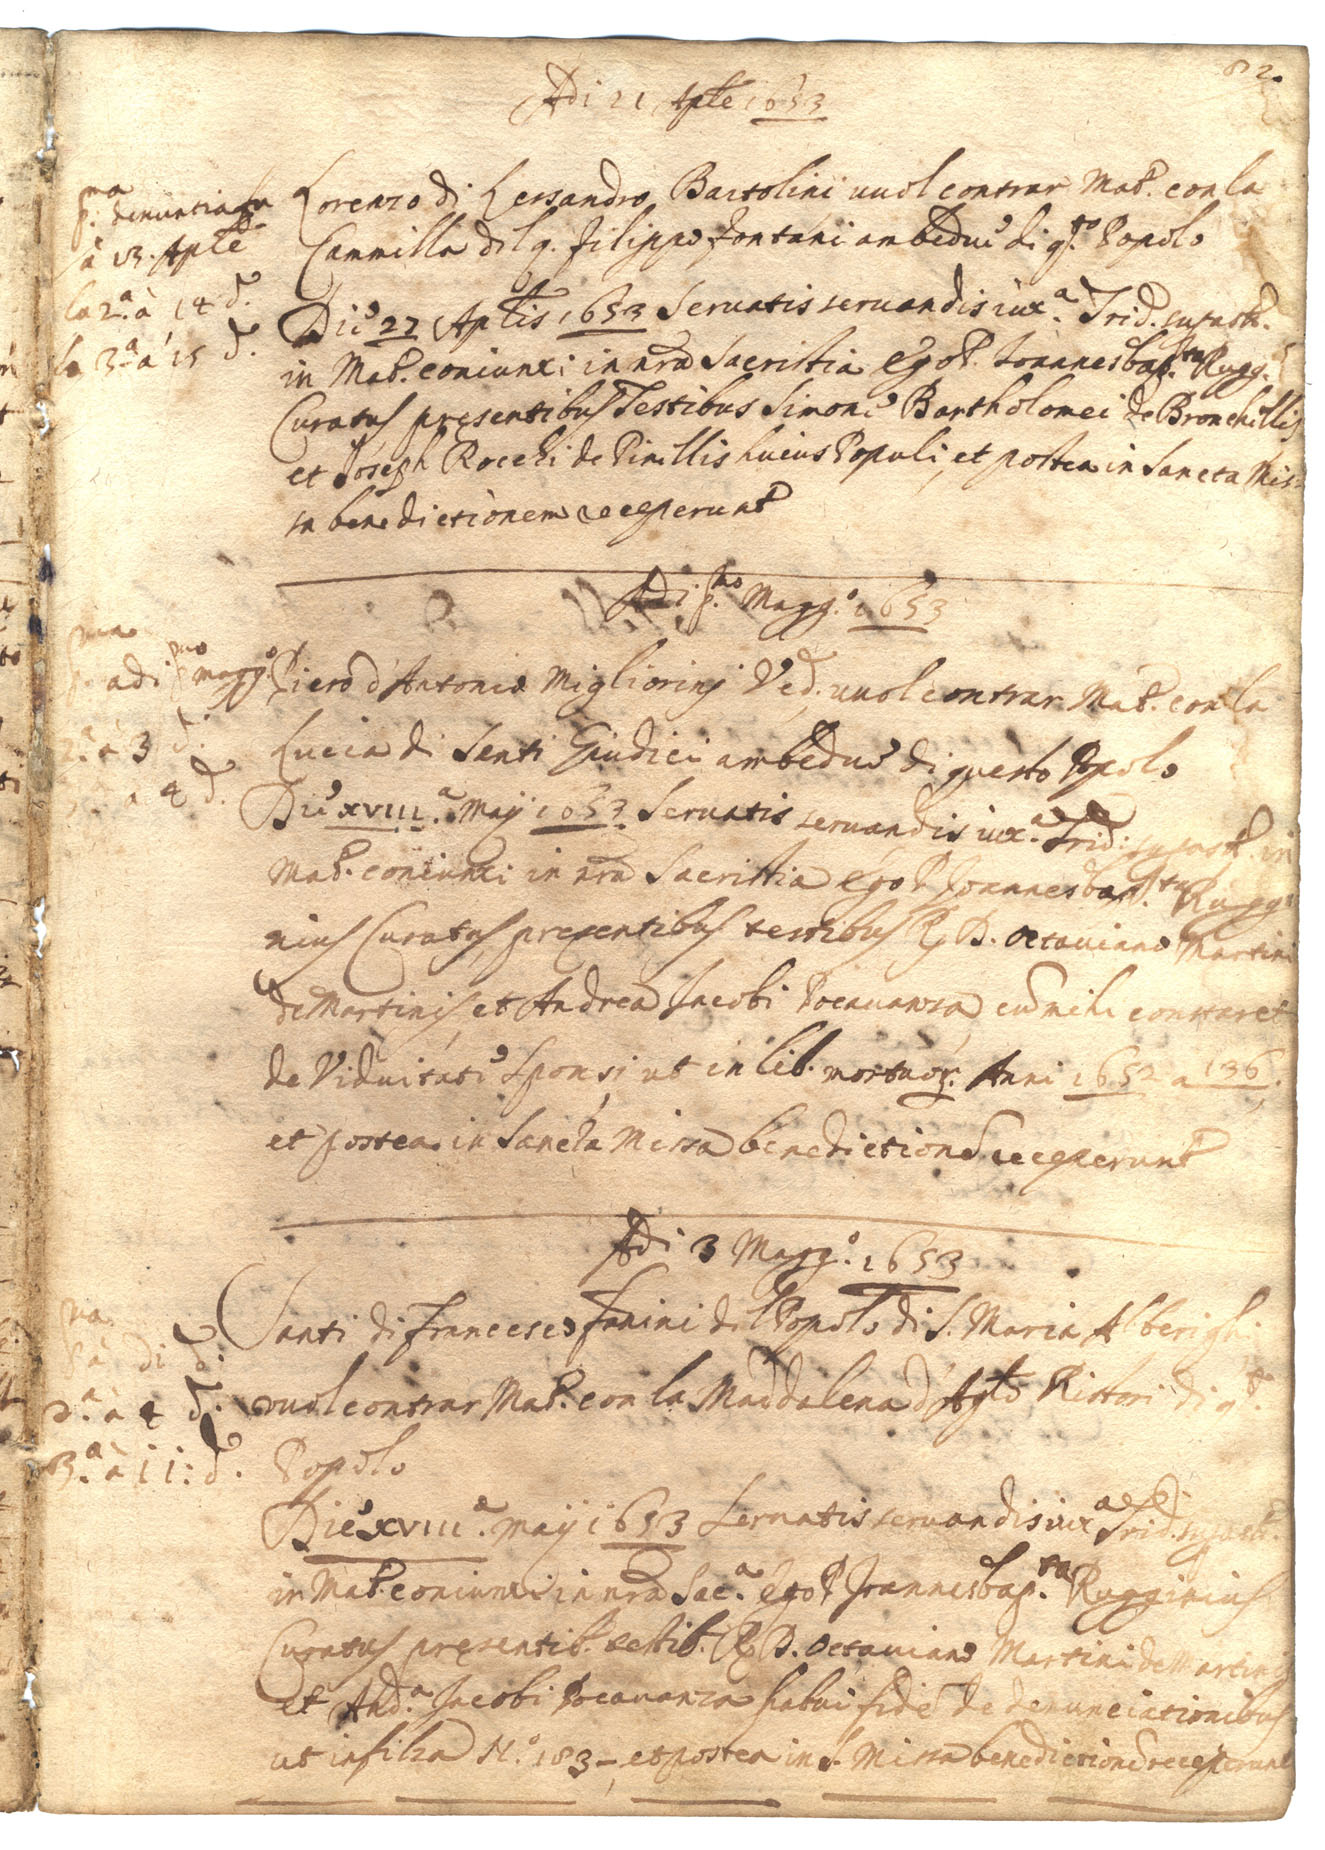 82.
Adi 21 Aprle 1653
p.ma denuntia fu
à 13. Aprle
la 2.a à 14 d.
la 3.a à 15 d.
Lorenzo di Lessandro Bartolini vuol contrar Mat.o con la
Cammilla del q. Filippo Fontani ambedue di q.to Popolo
Die 27 Aprlis 1653 Seruatis seruandis iux.a Trid.
in Mat.o coniunxi in nrã Sacristia Ego P. Joannesbap.ta Rugg.
Curatus presentibus Testibus Simone Bartholomei de Bronchellis
et Joseph Rocchi de Pinellis huius Populi, et postea in Sancta Mis=
sa benedictionem receperunt
Adi p.mo Magg.o 1653
p.ma adi p.mo Magg.o
2.a à 3 d.
à 4 d.
Piero d'Antonio Migliorinj Ved. vuol contrar Mat.o con la
Lucia di Santi Giudici ambedue di questo Popolo
Die XVIII.a Maij 1653 Seruatis seruandis iux.a Trid: in
Mat.o coniunxi in nrã Sacristia Ego P. Joannesbap.ta Ruggi=
nius Curatus, presentibus testibus R. D. Octauiano Martini
de Martinis, et Andrea Jacobi Pocauanza, cũ mihi constaret
de Viduitate Sponsi ut in lib. mortuor. Anni 1652 a 136.
et postea in Sancta Missa benedictionẽ receperunt
Adi 3 Magg.o 1653
p.a à di d.
2.a à 4 d.
3.a à 11: d.
Santi di Francesco Fanini del Popolo di S. Maria Alberighi
vuol contrar Mat.o con la Maddalena d'Ag.lo Ristori di q.to
Popolo
Die XVIII.a Maij 1653 Seruatis seruandis iux.a Trid.
in Mat.o coniunxi in nrã Sac.a Ego P. Joannesbap.ta Rugginius
Curatus presentib. testib. R. D. Octauiano Martini de Martinis
et And.a Jacobi Pocauanza habui fidẽ de denunciationibus
ut in filza N.o 183 –, et postea in S. Missa benedictionẽ receperunt